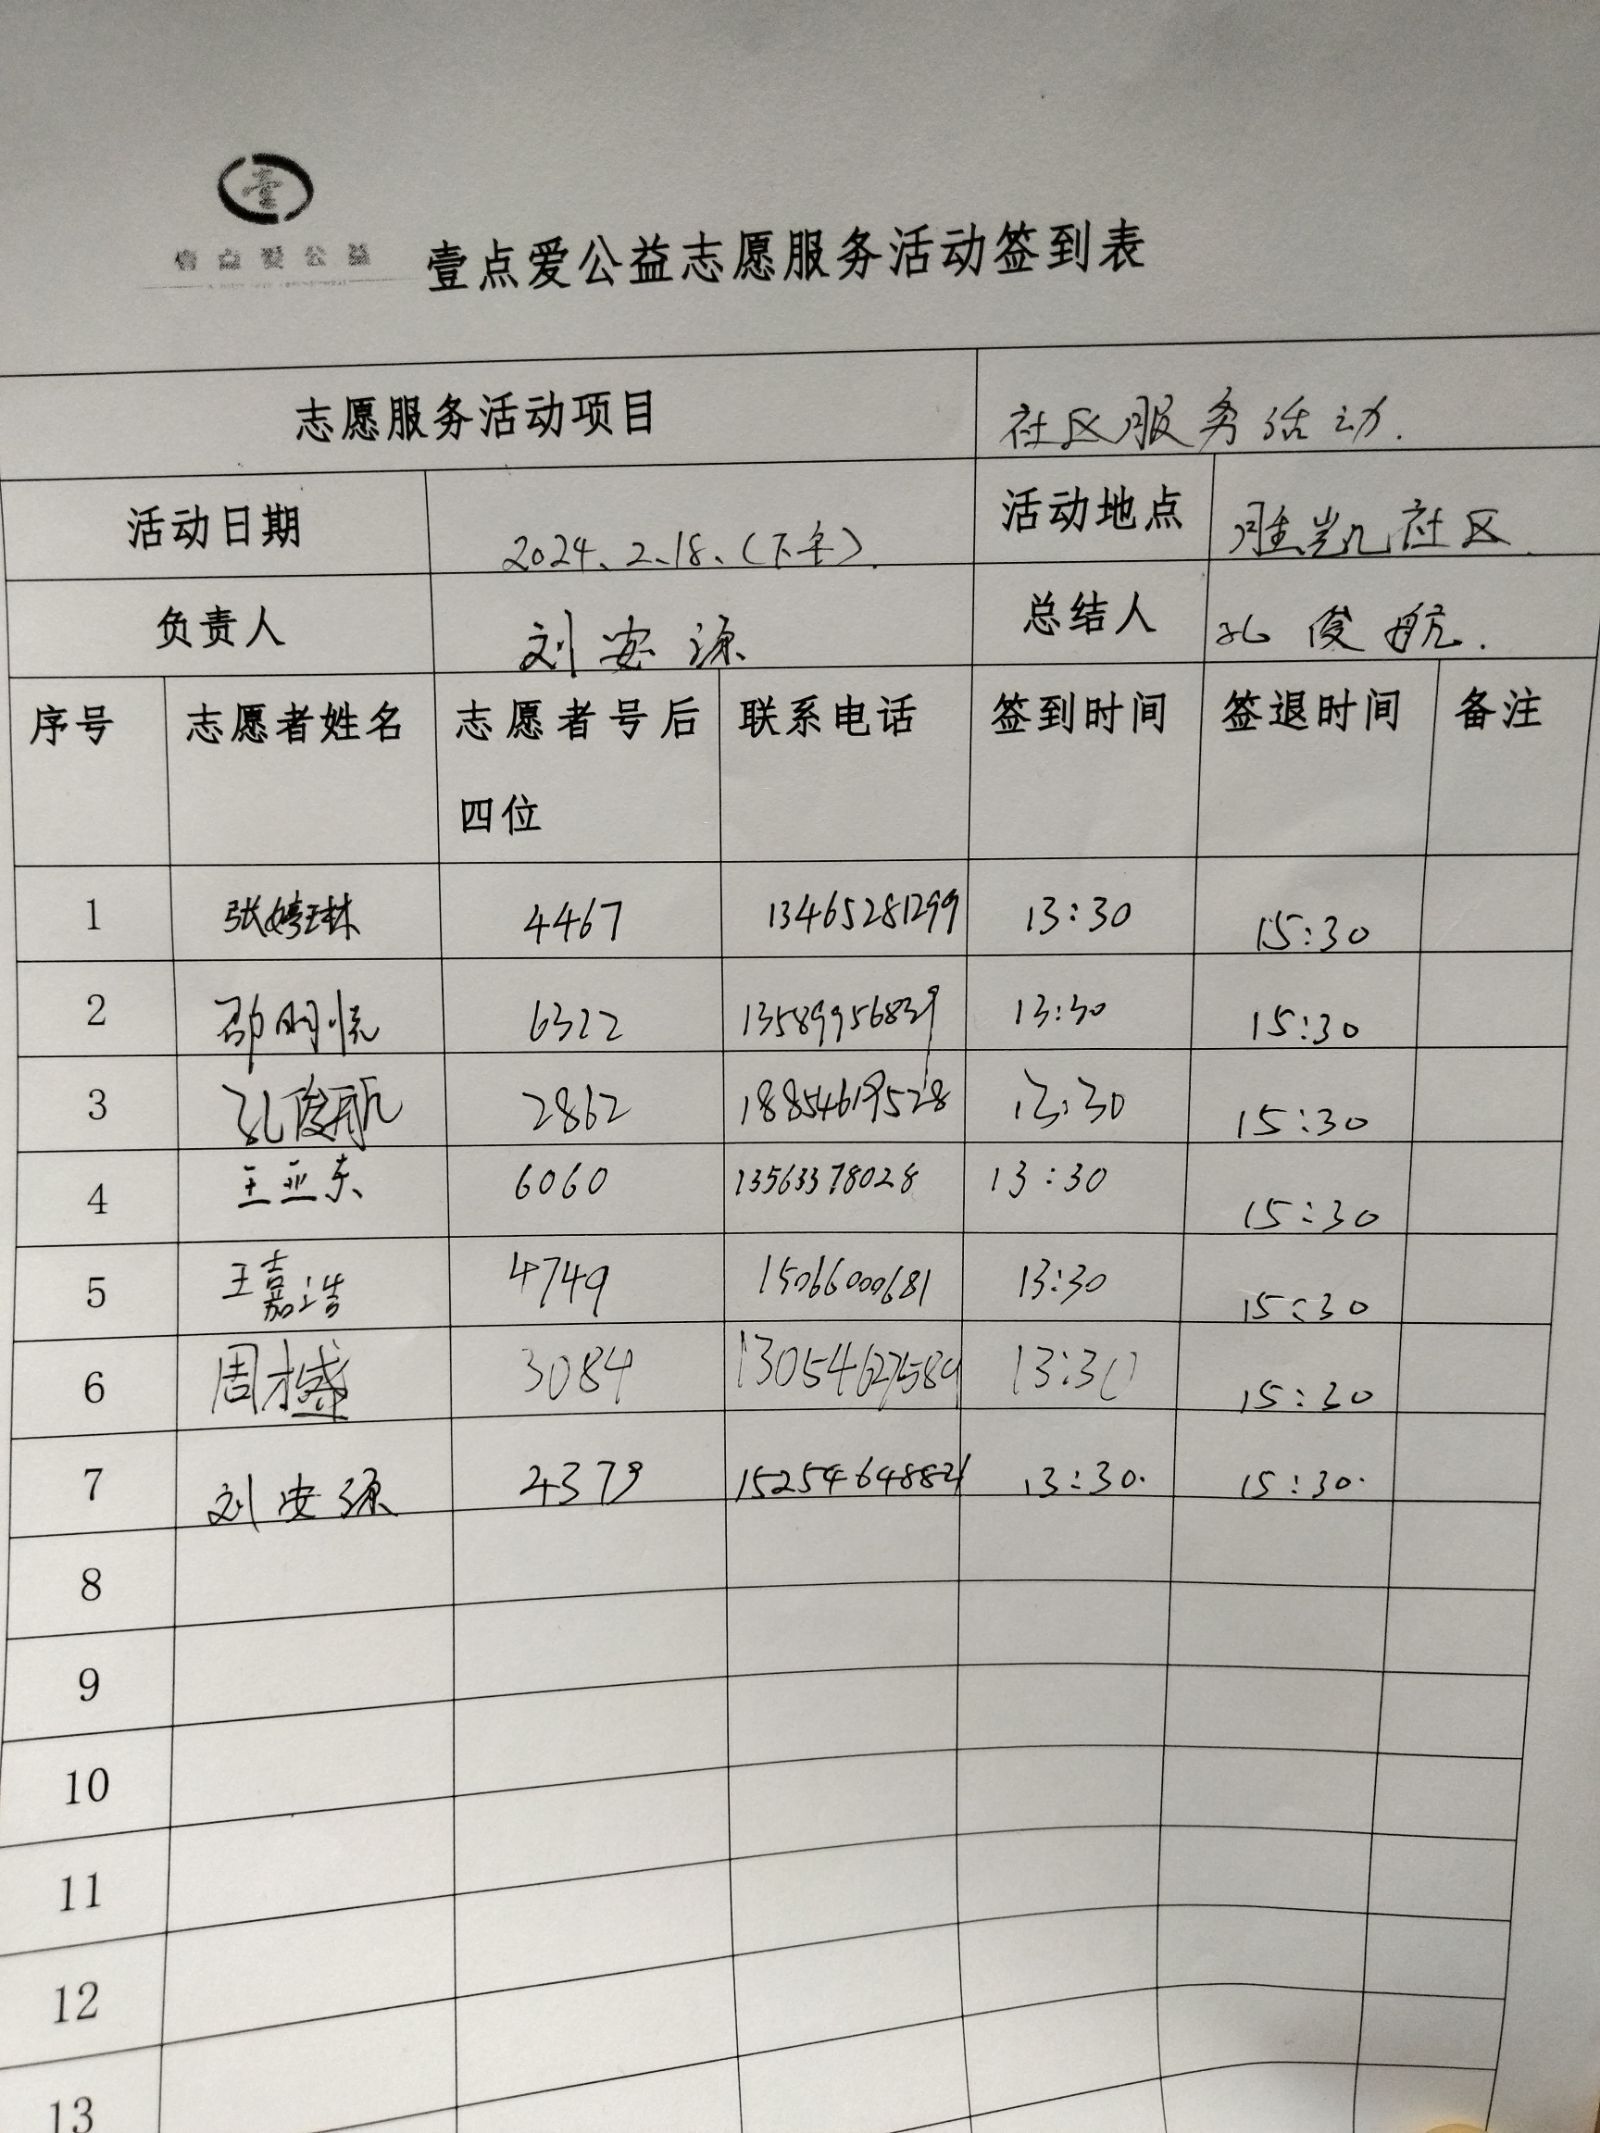 壹点爱公益
壹点爱公益志愿服务活动签到表
志愿服务活动项目 社区服务活动.
活动日期 2024、2、18、(下午). 活动地点 胜凯社区
负责人 刘安源 总结人 孔俊航.
序号 志愿者姓名 志愿者号后四位 联系电话 签到时间 签退时间 备注
1 张婷琳 4467 13465281299 13:30 15:30
2 邵明悦 6322 13589956839 13:30 15:30
3 孔俊航 2862 18854619528 13:30 15:30
4 王亚东 6060 13563378028 13:30 15:30
5 王嘉浩 4749 15066000681 13:30 15:30
6 周才盛 3084 13054627589 13:30 15:30
7 刘安源 4379 15254648821 13:30. 15:30.
8
9
10
11
12
13